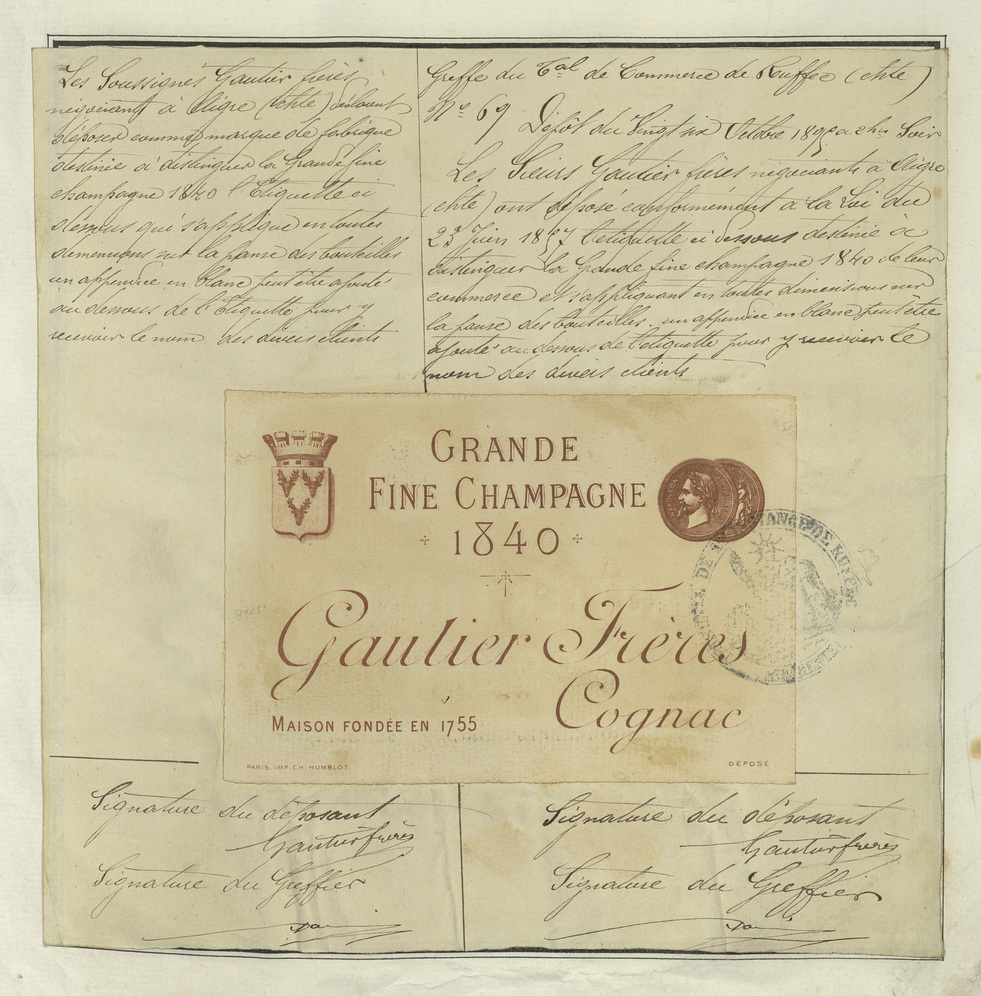 Les Soussignés Gautier frères
négociants à Aigre (chte) déclarent
déposer comme marque de fabrique
destinée à distinguer la Grande fine
champagne 1840 l'Etiquette ci
dessous qui s'applique en toutes
dimensions sur la panse des bouteilles
un appendice en blanc peut être ajouté
au dessous de l'Etiquette pour y
recevoir le nom des divers clients
Greffe du Tal de Commerce de Ruffec (chte)
No 69 Dépôt du Vingt six Octobre Soir
Les Sieurs Gautier frères négociants à Aigre
(chte) ont déposé conformément à la Loi du
23 Juin 1857 l'etiquette ci dessous destinée à
distinguer la Grande fine champagne 1840 de leur
commerce et s'appliquant en toutes dimensions sur
la panse des bouteilles, un appendice en blanc peut être
ajouté au dessous de l'etiquette pour y recevoir le
nom des divers clients
GRANDE
FINE CHAMPAGNE
1840
Gautier Frères
Cognac
MAISON FONDÉE EN 1755
PARIS. IMP. CH. HUMBLOT
DÉPOSÉ
DE RUFFEC
Signature du déposant
Gautier frères
Signature du Greffier
Signature du déposant
Gautier frères
Signature du Greffier